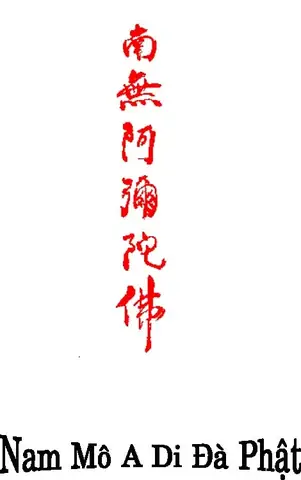 南無阿彌陀佛
Nam Mô A Di Đà Phật